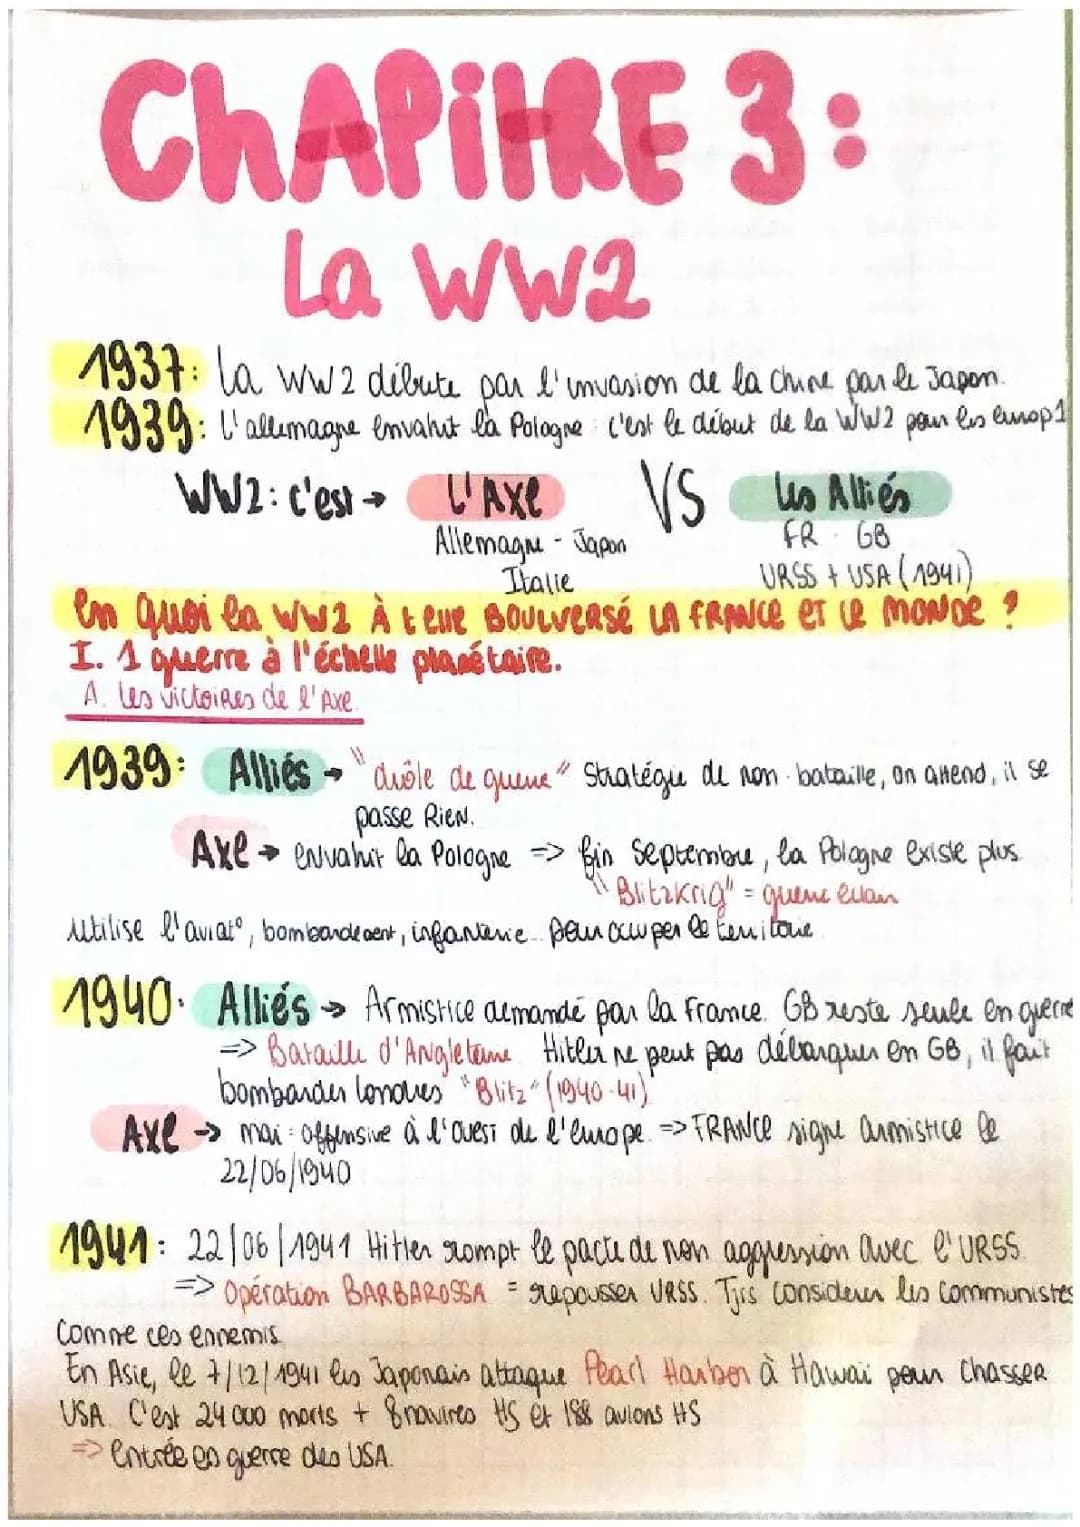 CHAPITRE 3:
La WW2
1937: La WW2 débute par l'invasion de la chine par le Japon.
1939: L'allemagne envahit la Pologne : c'est le début de la WW2 pour les europ1
WW2: C'est → L'AXE VS Les Alliés
Allemagne - Japon FR - GB
Italie URSS + USA (1941)
En Quoi la WW2 À t elle BOULVERSÉ LA FRANCE ET LE MONDE ?
I. 1 guerre à l'échelle planétaire.
A. Les victoires de l'Axe.
1939: Alliés → "drôle de guerre" Stratégie de non-bataille, on attend, il se
passe RIEN.
Axe → envahit la Pologne => fin Septembre, la Pologne existe plus
"Blitzkrig" = guerre éclair
utilise l'aviat°, bombardement, infanterie... pour occuper le territoire
1940: Alliés → Armistice demandé par la France. GB reste seule en guerre
=> Bataille d'Angleterre Hitler ne peut pas débarquer en GB, il fait
bombarder Londres "Blitz" (1940-41)
Axe → mai : offensive à l'OUEST de l'europe. => FRANCE signe armistice le
22/06/1940
1941: 22/06/1941 Hitler rompt le pacte de non aggression avec l'URSS.
=> Opération BARBAROSSA = repousser URSS. Tjrs considerer les communistes
Comme ces ennemis.
En Asie, le 7/12/1941 les Japonais attaque Pearl Harbor à Hawaï pour Chasser
USA. C'est 24 000 morts + 8 navires HS et 188 avions HS
=> Entrée en guerre des USA.